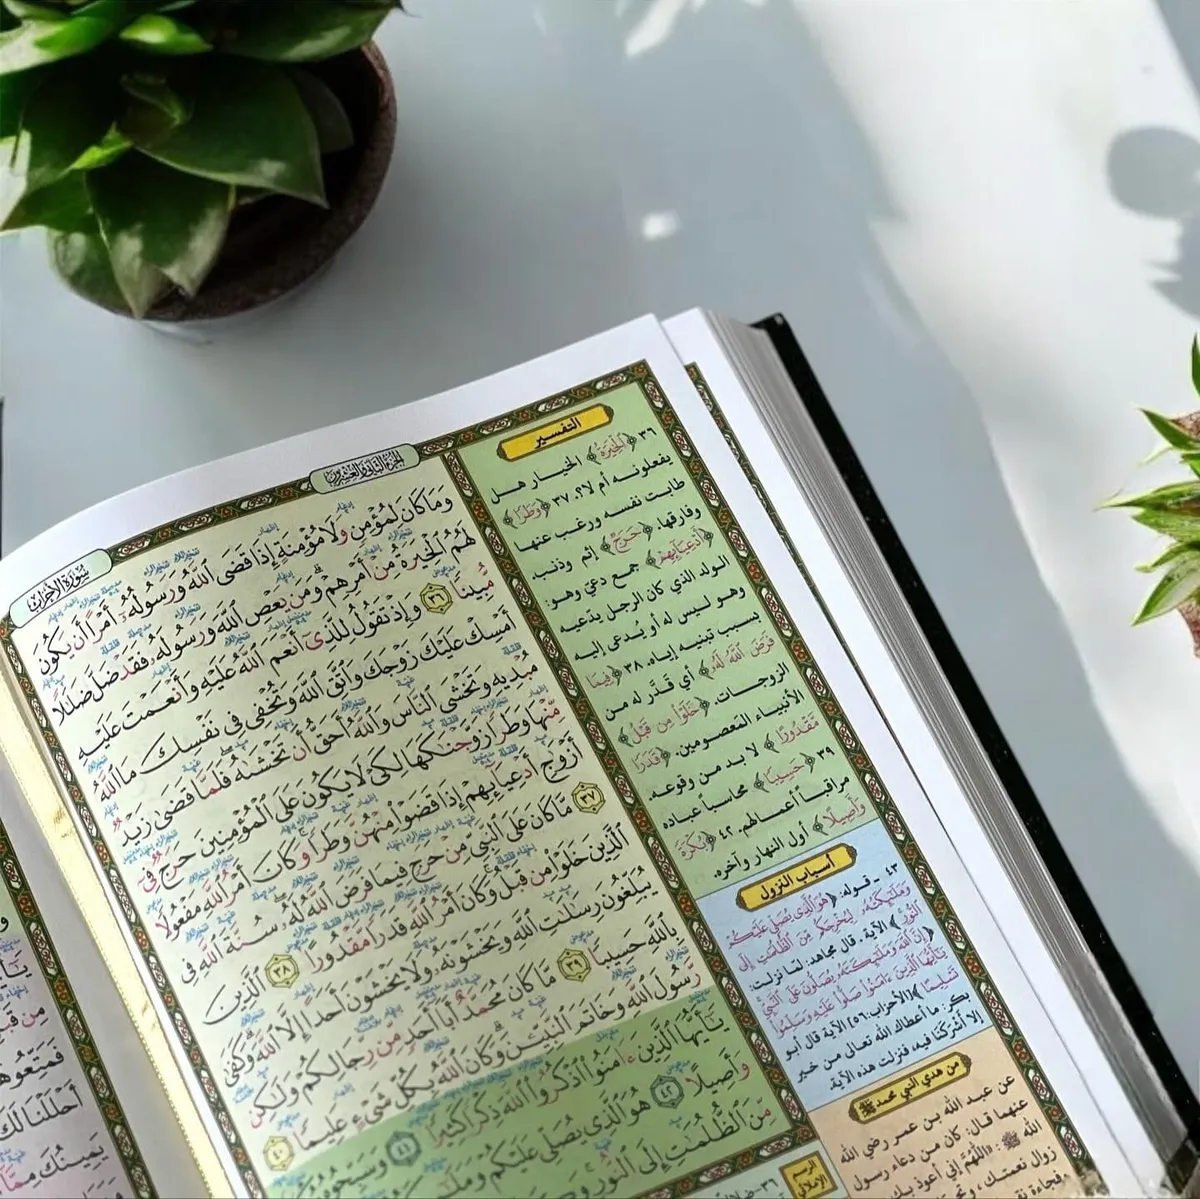 الجزء الثاني والعشرون
سورة الأحزاب
وَمَا كَانَ لِمُؤْمِنٍ وَلَا مُؤْمِنَةٍ إِذَا قَضَى ٱللَّهُ وَرَسُولُهُۥٓ أَمْرًا أَن يَكُونَ
لَهُمُ ٱلْخِيَرَةُ مِنْ أَمْرِهِمْ ۗ وَمَن يَعْصِ ٱللَّهَ وَرَسُولَهُۥ فَقَدْ ضَلَّ ضَلَـٰلًا
مُّبِينًا ٣٦ وَإِذْ تَقُولُ لِلَّذِىٓ أَنْعَمَ ٱللَّهُ عَلَيْهِ وَأَنْعَمْتَ عَلَيْهِ
أَمْسِكْ عَلَيْكَ زَوْجَكَ وَٱتَّقِ ٱللَّهَ وَتُخْفِى فِى نَفْسِكَ مَا ٱللَّهُ
مُبْدِيهِ وَتَخْشَى ٱلنَّاسَ وَٱللَّهُ أَحَقُّ أَن تَخْشَىٰهُ ۖ فَلَمَّا قَضَىٰ زَيْدٌ
مِّنْهَا وَطَرًا زَوَّجْنَـٰكَهَا لِكَىْ لَا يَكُونَ عَلَى ٱلْمُؤْمِنِينَ حَرَجٌ فِىٓ
أَزْوَٰجِ أَدْعِيَآئِهِمْ إِذَا قَضَوْا۟ مِنْهُنَّ وَطَرًا ۚ وَكَانَ أَمْرُ ٱللَّهِ مَفْعُولًا
٣٧ مَّا كَانَ عَلَى ٱلنَّبِىِّ مِنْ حَرَجٍ فِيمَا فَرَضَ ٱللَّهُ لَهُۥ ۖ سُنَّةَ ٱللَّهِ فِى
ٱلَّذِينَ خَلَوْا۟ مِن قَبْلُ ۚ وَكَانَ أَمْرُ ٱللَّهِ قَدَرًا مَّقْدُورًا ٣٨ ٱلَّذِينَ
يُبَلِّغُونَ رِسَـٰلَـٰتِ ٱللَّهِ وَيَخْشَوْنَهُۥ وَلَا يَخْشَوْنَ أَحَدًا إِلَّا ٱللَّهَ ۗ وَكَفَىٰ
بِٱللَّهِ حَسِيبًا ٣٩ مَّا كَانَ مُحَمَّدٌ أَبَآ أَحَدٍ مِّن رِّجَالِكُمْ وَلَـٰكِن
رَّسُولَ ٱللَّهِ وَخَاتَمَ ٱلنَّبِيِّـۧنَ ۗ وَكَانَ ٱللَّهُ بِكُلِّ شَىْءٍ عَلِيمًا ٤٠
يَـٰٓأَيُّهَا ٱلَّذِينَ ءَامَنُوا۟ ٱذْكُرُوا۟ ٱللَّهَ ذِكْرًا كَثِيرًا ٤١ وَسَبِّحُوهُ
وَأَصِيلًا ٤٢ هُوَ ٱلَّذِى يُصَلِّى عَلَيْكُمْ
مِّنَ ٱلظُّلُمَـٰتِ إِلَى ٱلنُّورِ
التفسير
٣٦ ﴿الْخِيَرَةُ﴾ الخيار هل
يفعلونه أم لا؟. ٣٧ ﴿وَطَرًا﴾
طابت نفسه ورغب عنها
وفارقها. ﴿حَرَجٌ﴾ إثم وذنب.
﴿أَدْعِيَائِهِمْ﴾ جمع دعيّ وهو:
الولد الذي كان الرجل يدّعيه
وهو ليس له أو يُدعى إليه
بسبب تبنيه إياه. ٣٨ ﴿فِيمَا
فَرَضَ اللَّهُ لَهُ﴾ أي قدّر له من
الزوجات. ﴿خَلَوْا مِن قَبْلُ﴾
الأنبياء المعصومين. ﴿قَدَرًا
مَقْدُورًا﴾ لا بد من وقوعه.
٣٩ ﴿حَسِيبًا﴾ محاسباً عباده
مراقباً أعمالهم. ٤٢ ﴿بُكْرَةً
وَأَصِيلًا﴾ أول النهار وآخره.
أسباب النزول
٤٣ ـ قوله: ﴿هُوَ الَّذِي يُصَلِّي عَلَيْكُمْ
وَمَلَائِكَتُهُ لِيُخْرِجَكُم مِّنَ الظُّلُمَاتِ إِلَى
النُّورِ﴾ الآية. قال مجاهد: لما نزلت:
﴿إِنَّ اللَّهَ وَمَلَائِكَتَهُ يُصَلُّونَ عَلَى النَّبِيِّ
يَا أَيُّهَا الَّذِينَ آمَنُوا صَلُّوا عَلَيْهِ وَسَلِّمُوا
تَسْلِيمًا﴾ [الأحزاب: ٥٦] الآية قال أبو
بكر: ما أعطاك الله تعالى من خير
إلا أشركتنا فيه، فنزلت هذه الآية.
من هدي النبي محمد ﷺ
عن عبد الله بن عمر رضي الله
عنهما قال: كان من دعاء رسول
الله ﷺ: «اللّهمّ إني أعوذ بك
زوال نعمتك،
الرسم
الإملائي